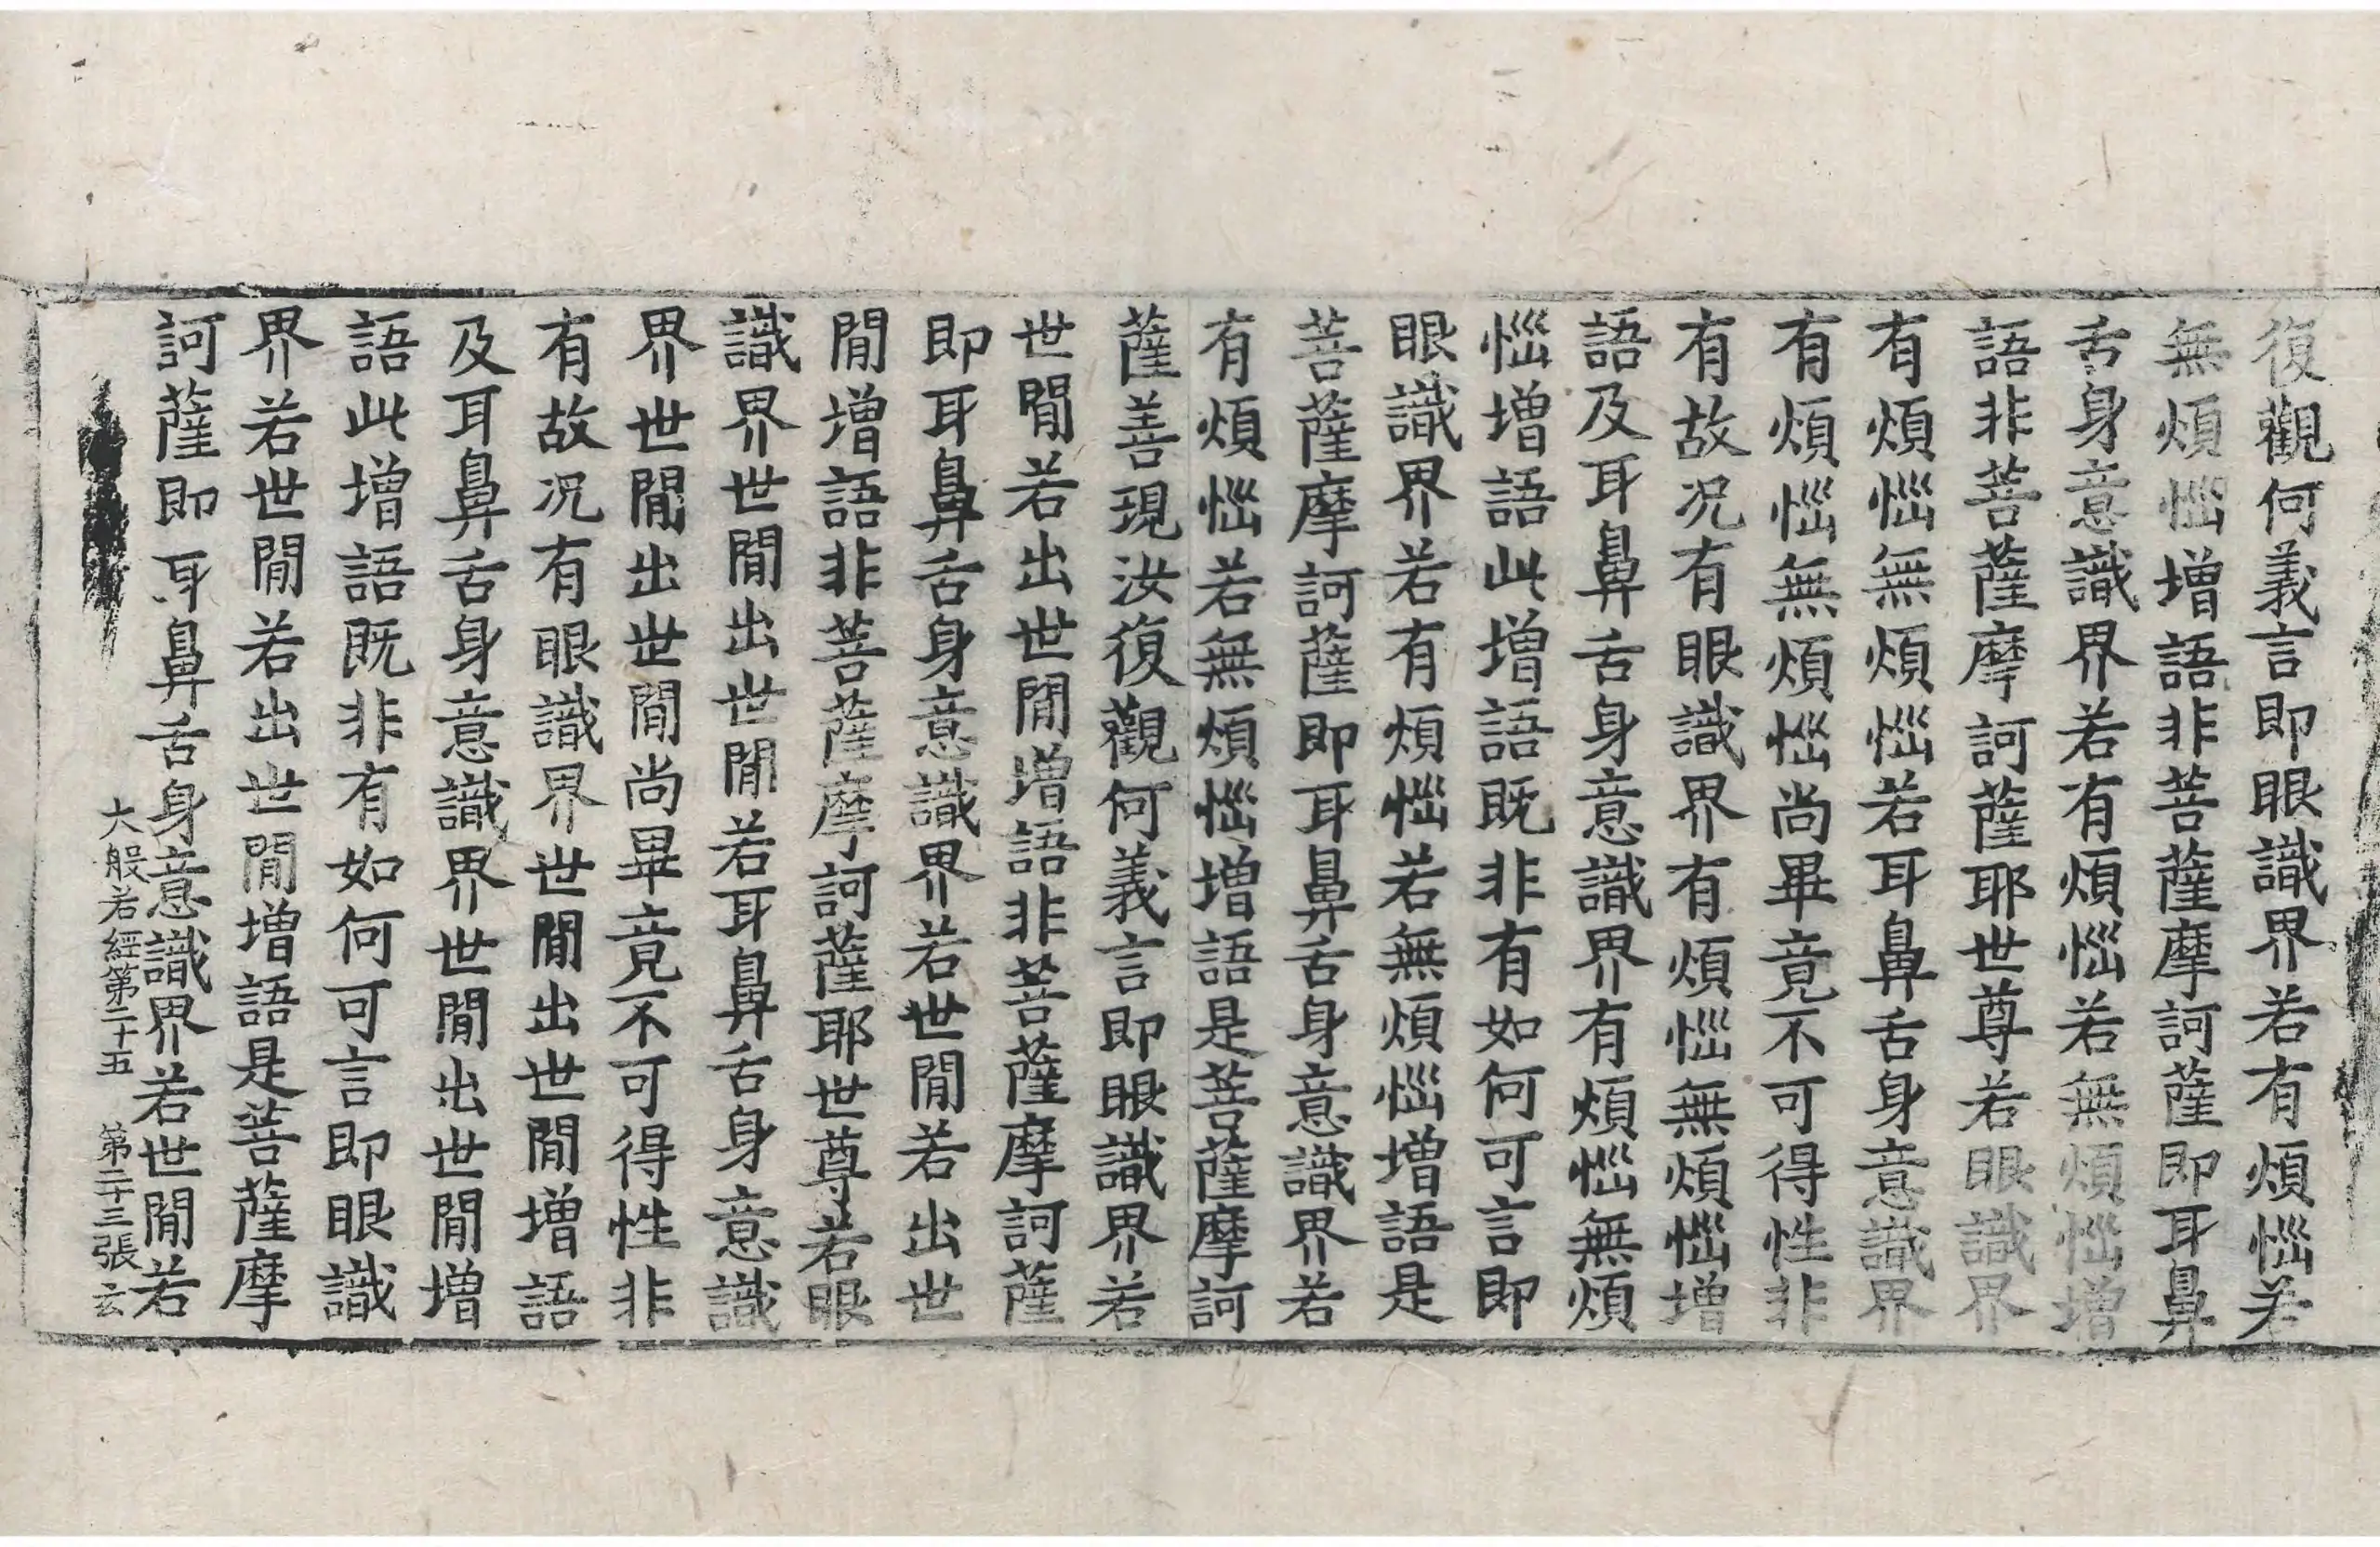 復觀何義言即眼識界若有煩惱若
無煩惱增語非菩薩摩訶薩即耳鼻
舌身意識界若有煩惱若無煩惱增
語非菩薩摩訶薩耶世尊若眼識界
有煩惱無煩惱若耳鼻舌身意識界
有煩惱無煩惱尚畢竟不可得性非
有故况有眼識界有煩惱無煩惱增
語及耳鼻舌身意識界有煩惱無煩
惱增語此增語既非有如何可言即
眼識界若有煩惱若無煩惱增語是
菩薩摩訶薩即耳鼻舌身意識界若
有煩惱若無煩惱增語是菩薩摩訶
薩善現汝復觀何義言即眼識界若
世間若出世間增語非菩薩摩訶薩
即耳鼻舌身意識界若世間若出世
間增語非菩薩摩訶薩耶世尊若眼
識界世間出世間若耳鼻舌身意識
界世間出世間尚畢竟不可得性非
有故况有眼識界世間出世間增語
及耳鼻舌身意識界世間出世間增
語此增語既非有如何可言即眼識
界若世間若出世間增語是菩薩摩
訶薩即耳鼻舌身意識界若世間若
大般若經第二十五 第二十三張 云